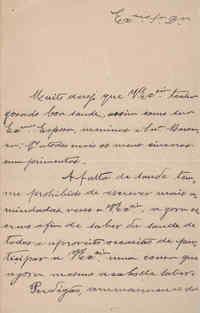 Exmo. Sr.
Muito desejo que V. Exa. tenha
gosado boa saude, assim como sua
Exa. Esposa, meninas e
A todos mais os meus sinceros
cumprimentos.
A falta de saude tem
me prohibido de escrever mais a
miudadas vezes a V. Exa. agora es
crevo afim de saber da saude de
todos e aproveito occasião de par
ticipar a V. Exa. uma cousa que
agora mesmo acabo de saber.